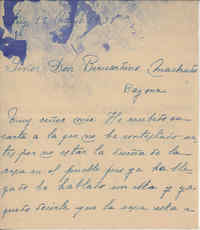 Señor Don Bienvenido Machado
Bayona
Muy señor mio: He recibido su
carta a la que no he contestado an
tes por no estar la dueña de la
casa en el pueblo pues ya ha lle
gado he hablado con ella y ya
puedo decirle que la casa esta a